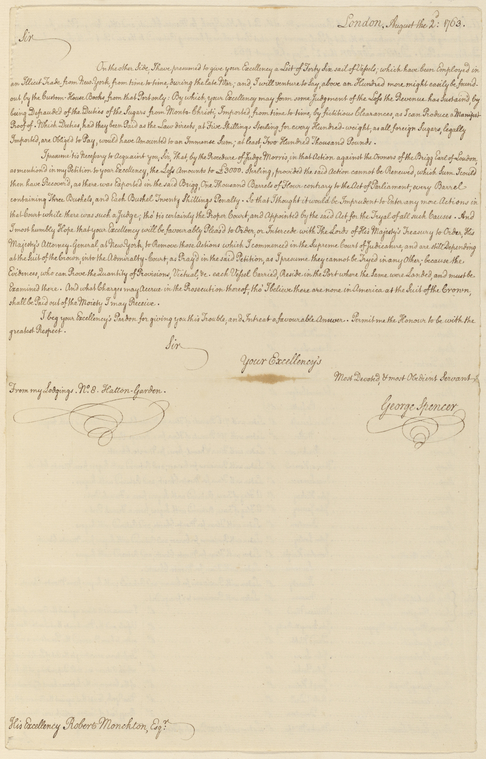 London, August the 2d: 1763.
Sir
On the other side, I have presumed to give your Excellency a List of Forty Six sail of Vessels, which have been Employed in
an Illicit Trade, from New York, from time to time, during the late War; and I will venture to say, above an Hundred more might easily be found
out, by the Custom-House Books from that Port only: By which, your Excellency may form some Judgement of the Loss the Revenue has Sustained, by
being Defrauded of the Duties of the Sugars from Monte-Christi, Imported, from time to time, by fictitious Clearances, as I can Produce a Manifest
Proof of: Which Duties, had they been Paid as the Law directs, at Five Shillings Sterling for every Hundred-weight, as all foreign Sugars, legally
Imported, are Oblig'd to Pay, would have Amounted to an Immense Sum; at least Two Hundred Thousand Pounds.
I presume 'tis Necessary to Acquaint you, Sir, That, by the Procedure of Judge Morris, in that Action against the Owners of the Brigg Earl of London,
as mentioned in my Petition to your Excellency, the Loss Amounts to £3000. Sterling, provided the said Action cannot be Renewed, which Sum I could
then have Recovered, as there was Exported in the said Brigg, One Thousand Barrels of Flour contrary to the Act of Parliament; every Barrel
containing Three Bushels, and Each Bushel Twenty Shillings Penalty. So that I thought it would be Imprudent to Enter any more Actions in
that Court while there was such a Judge; tho' tis certainly the Proper Court, and Appointed by the said Act, for the Tryal of all such Causes. And
I most humbly Hope that your Excellency will be favourably Pleas'd to Order, or Intercede with The Lords of His Majesty's Treasury to Order, His
Majesty's Attorney General at New York, to Remove those Actions which I commenced in the Supreme Court of Judicature, and are still depending
at the Suit of the Crown, into the Admiralty-Court, as Pray'd in the said Petition, as I presume they cannot be Tryed in any Other, because the
Evidences, who can Prove the Quantity of Provisions, Victual &c. each Vessel Carried, Reside in the Port where the same was Landed, and must be
Examined there. And what Charges may Accrue in the Prosecution thereof, tho' I believe there are none in America at the Suit of the Crown,
shall be Paid out of the Moiety I may Receive.
I beg your Excellency's Pardon for giving you this Trouble, and Intreat a favourable Answer. Permit me the Honour to be with the
greatest Respect.
Sir
Your Excellency's
Most Devoted & most Obedient Servant
From my Lodgings No. 8. Hatton-Garden.
George Spencer
His Excellency Robert Monckton, Esqr.